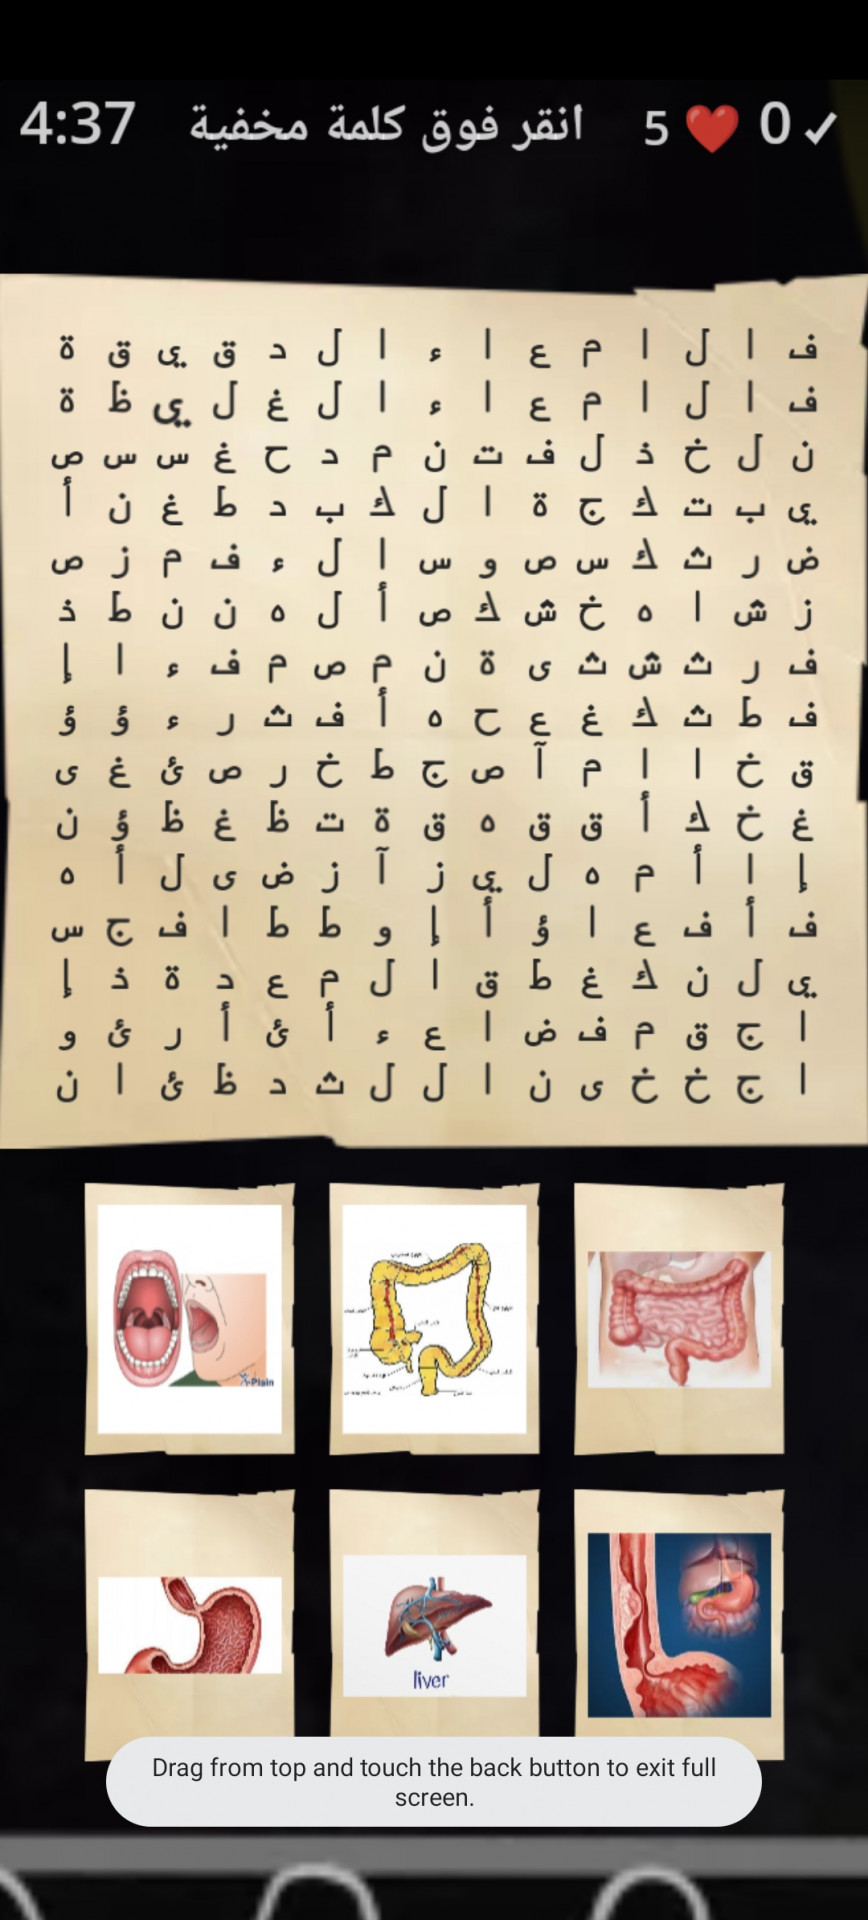 4:37 انقر فوق كلمة مخفية 5 ❤️ 0 ✓
ف ا ل ا م ع ا ء ا ل د ق ي ق ة
ف ا ل ا م ع ا ء ا ل غ ل ي ظ ة
ن ل خ ذ ل ف ت ن م د ح غ س س ص
ي ب ت ك ج ة ا ل ك ب د ط غ ن أ
ض ر ث ك س ص و س ا ل ء ف م ز ص
ز ش ا ه خ ش ك ص أ ل ه ن ن ط ذ
ف ر ث ش ث ى ة ن م ص م ف ء ا إ
ف ط ث ك غ ع ح ه أ ف ث ر ء ؤ ؤ
ق خ ا ا م آ ص ج ط خ ر ص ئ غ ى
غ خ ك أ ق ق ه ق ة ت ظ غ ظ ؤ ن
إ ا أ م ه ل ي ز آ ز ض ى ل أ ه
ف أ ف ع ا ؤ أ إ و ط ط ا ف ج س
ي ل ن ك غ ط ق ا ل م ع د ة ذ إ
ا ج ق م ف ض ا ع ء أ ئ أ ر ئ و
ا ج خ خ ى ن ا ل ل ث د ظ ئ ا ن
X-Plain
liver
Drag from top and touch the back button to exit full
screen.